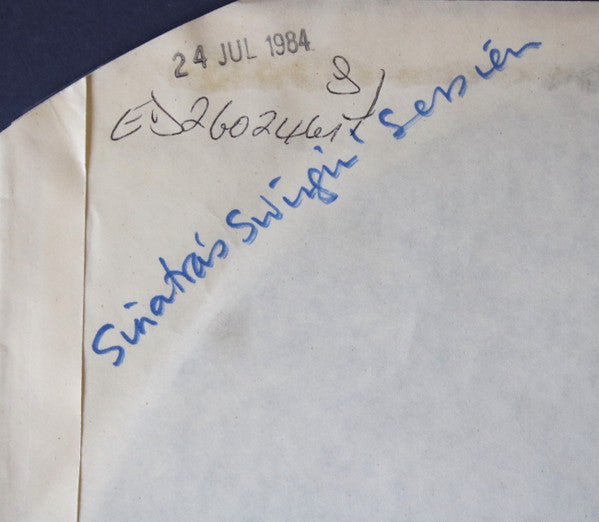 24 JUL 1984
ED2602461
Sinatra's Swingin' Session